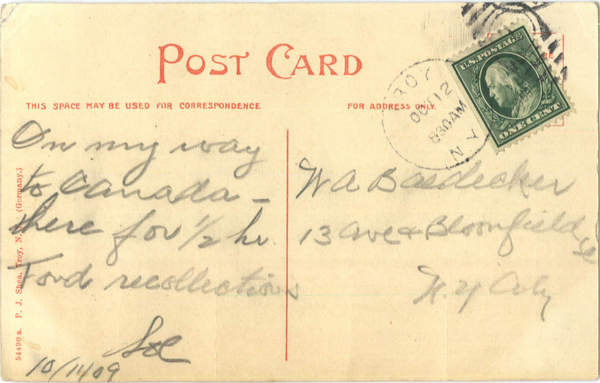 POST CARD
THIS SPACE MAY BE USED FOR CORRESPONDENCE
FOR ADDRESS ONLY
TROY
OCT 12
830AM
N.Y.
U.S. POSTAGE
ONE CENT
On my way
to Canada –
here for 1/2 hr.
Fond recollections
Sol
10/11/09
W A Baedecker
13 Ave & Bloomfield St
N. Y. City
54490 a. P. J. Shea, Troy, N. Y. (Germany.)